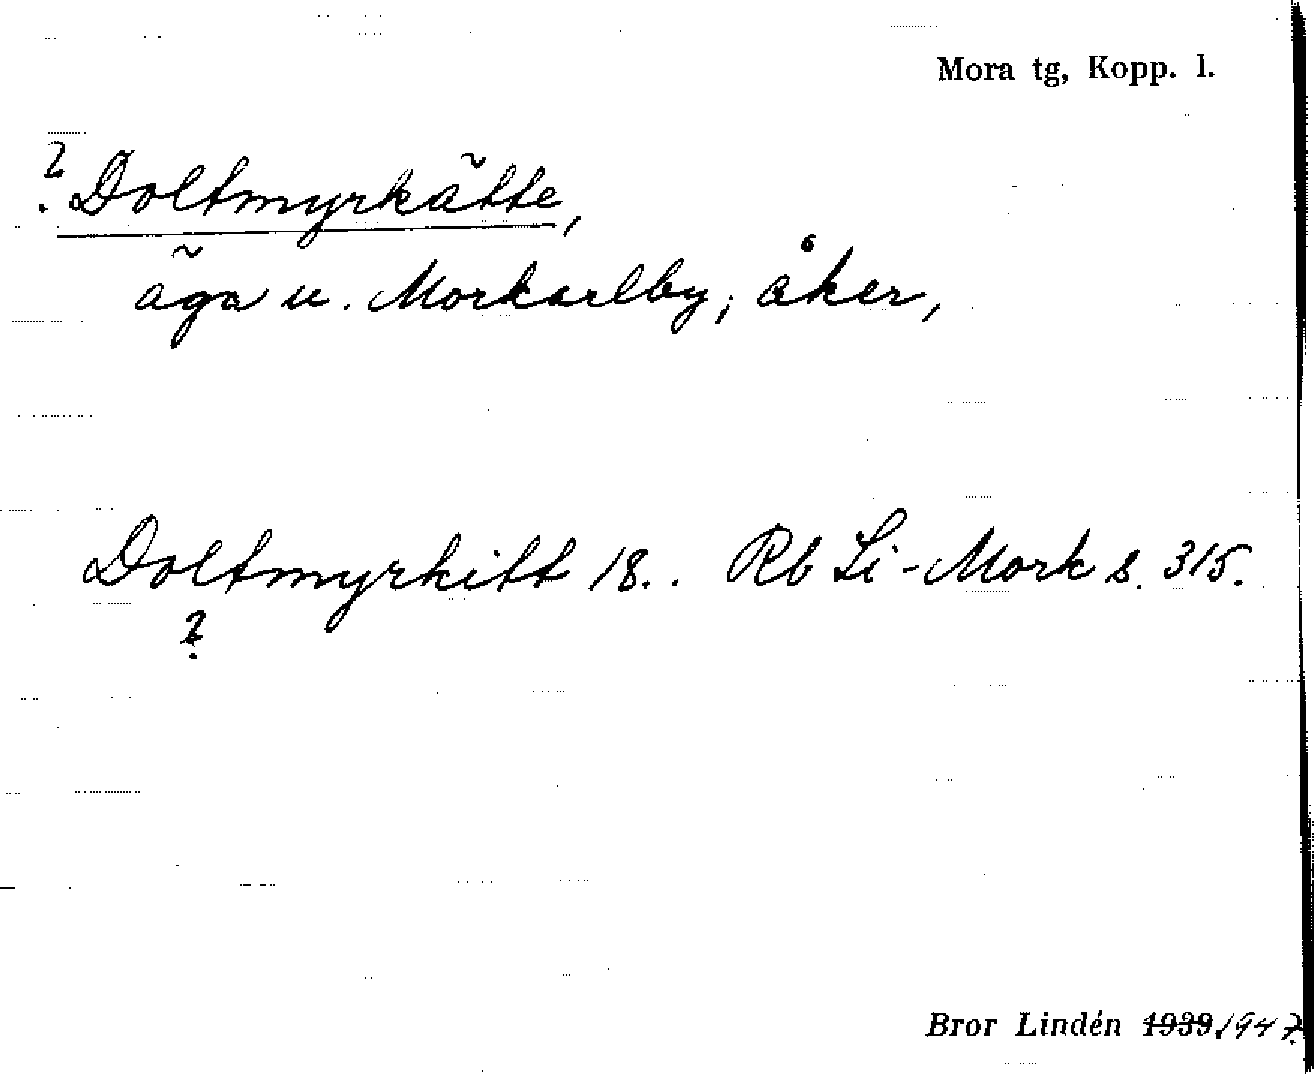 Mora tg, Kopp. l.
? Doltmyrkätte,
äga u. Morkarlby; åker,
Doltmyrkitt 18.. Rb Li-Mork s. 315.
?
Bror Lindén 1939. 1947.